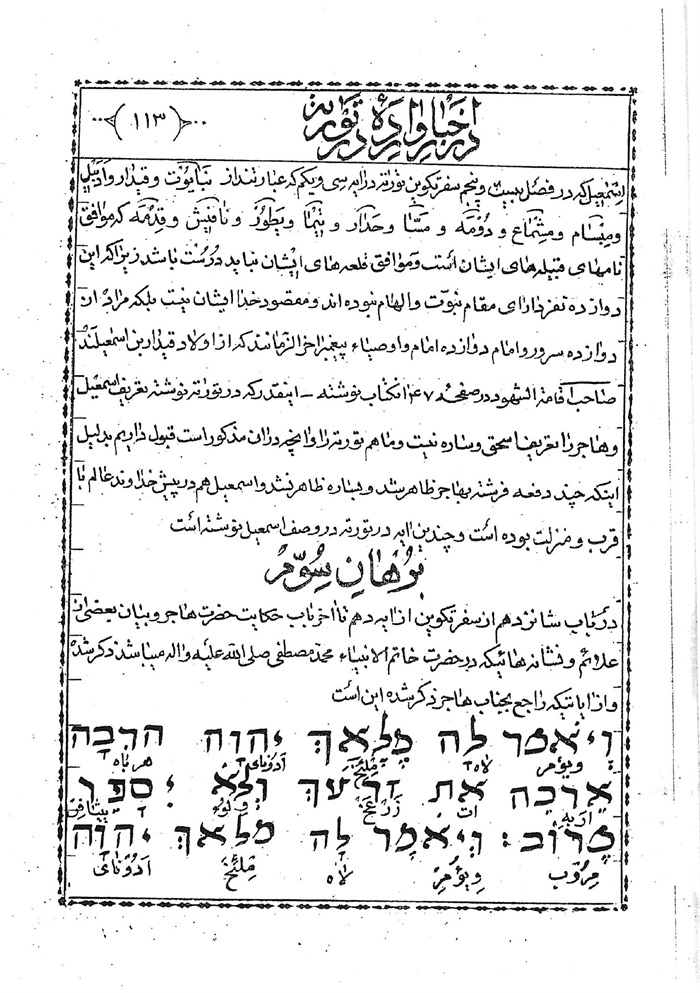 در اخبار وارده در توریة
(۱۱۳)
اِسْمٰعیل که در فصل بیست و پنجم سفر تکوین تورٰته در ایه سی و یکم که عبارتند از نبایوت و قیدار و ادبیل
ومبسام و مشماع و دومه و مسّا و حدار و تیما و یطور و نافیش و قدمه که موافق
نامهای قبیله های ایشان است و موافق قلعه های ایشان نباید درست باشد زیرا که این
دوازده نفر دارای مقام نبوت و الهام نبوده اند و مقصود خدا ایشان نیست بلکه مراد ان
دوازده سرور و امام دوازده امام و اوصیاء پیغمبر اخر الزمانند که از اولاد قیدار بن اسمعیلند
صاحب اقامة الشهود در صفحه ۱۴۷ نکتاب نوشته – اینقدر که در تورٰته نوشته تعریف اسمعیل
وهاجر را تعریف اسحق و ساره نیست و ما هم تورٰته را و انچه در ان مذکور است قبول داریم بدلیل
اینکه چند دفعه فرشته بهاجر ظاهر شد و بساره ظاهر نشد و اسمعیل هم در پیش خداوند عالم با
قرب و منزلت بوده است و چندین ایه در تورٰته در وصف اسمعیل نوشته است
برهان سوّم
در باب شانزدهم از سفر تکوین از ایه دهم تا اخر باب حکایت حضرت هاجر و بیان بعضی از
علائم و نشانه هائیکه در حضرت خاتم الانبیاء محمد مصطفی صلی الله علیه و اله میباشد ذکر شده
و از ایاتیکه راجع بجناب هاجر ذکر شده این است
וַיֹּאמֶר לָהּ מַלְאַךְ יְהוָה הַרְבָּה
ویؤمر لاه ملئخ ادونای هرباه
אַרְבֶּה אֶת זַרְעֵךְ וְלֹא יִסָּפֵר
اربه ات زرعخ ولوء ییسافر
מֵרֹב: וַיֹּאמֶר לָהּ מַלְאַךְ יְהוָה
مروب ویؤمر لاه ملئخ ادونای